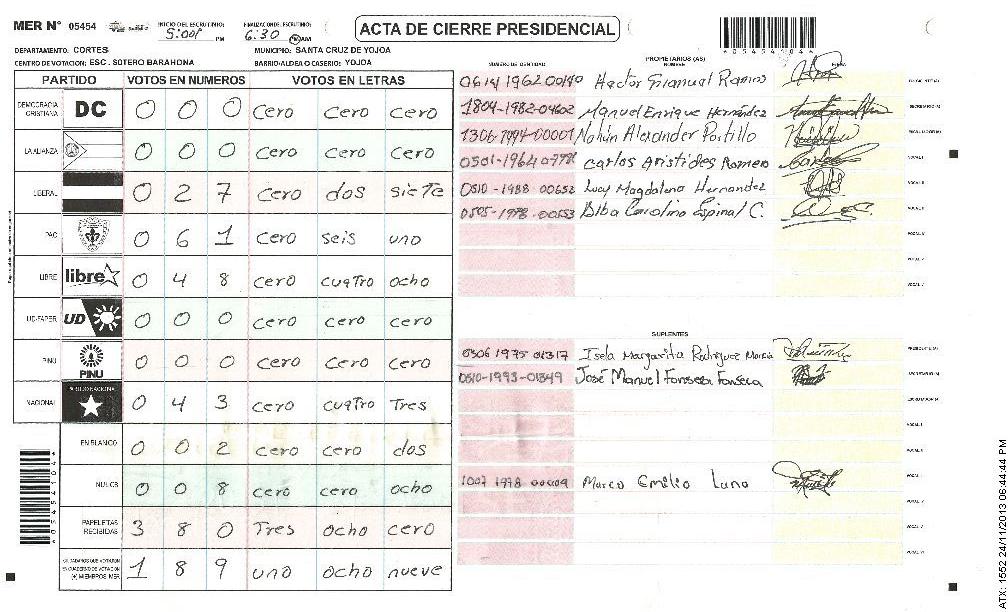 MER N° 05454 INICIO DEL ESCRUTINIO: 5:00 PM FINALIZACION DEL ESCRUTINIO: 6:30 PM AM
ACTA DE CIERRE PRESIDENCIAL
DEPARTAMENTO: CORTES MUNICIPIO: SANTA CRUZ DE YOJOA
CENTRO DE VOTACION: ESC. SOTERO BARAHONA BARRIO/ALDEA O CASERIO: YOJOA
PARTIDO VOTOS EN NUMEROS VOTOS EN LETRAS
DEMOCRACIA CRISTIANA DC 0 0 0 cero cero cero
LA ALIANZA 0 0 0 cero cero cero
LIBERAL 0 2 7 cero dos siete
PAC 0 6 1 cero seis uno
LIBRE libre 0 4 8 cero cuatro ocho
UD-FAPER UD 0 0 0 cero cero cero
PINU PINU 0 0 0 cero cero cero
NACIONAL 0 4 3 cero cuatro Tres
EN BLANCO 0 0 2 cero cero dos
NULOS 0 0 8 cero cero ocho
PAPELETAS RECIBIDAS 3 8 0 Tres ocho cero
CIUDADANOS QUE VOTARON EN CUADERNO DE VOTACION (+) MIEMBROS MER 1 8 9 uno ocho nueve
PROPIETARIOS (AS)
NUMERO DE IDENTIDAD NOMBRE FIRMA
Hector Ramos
1804-1982-04602 Manuel Enrique Hernández SECRETARIO (A)
1306-1994-00001 Nahún Alexander Portillo ESCRUTADOR (A)
Carlos Aristides Romero VOCAL I
0510-1988 00652 Lucy Magdalena Hernandez VOCAL II
0505-1978-00553 Alba Carolina Espinal C.
SUPLENTES
0506 1975 01317 Isela Margarita Rodriguez
0510-1993-01349 José Manuel Fonseca Fonseca SECRETARIO (A)
1007 1978 00009 Marco Emilio Luna
ATX: 1552 24/11/2013 06:44:44 PM